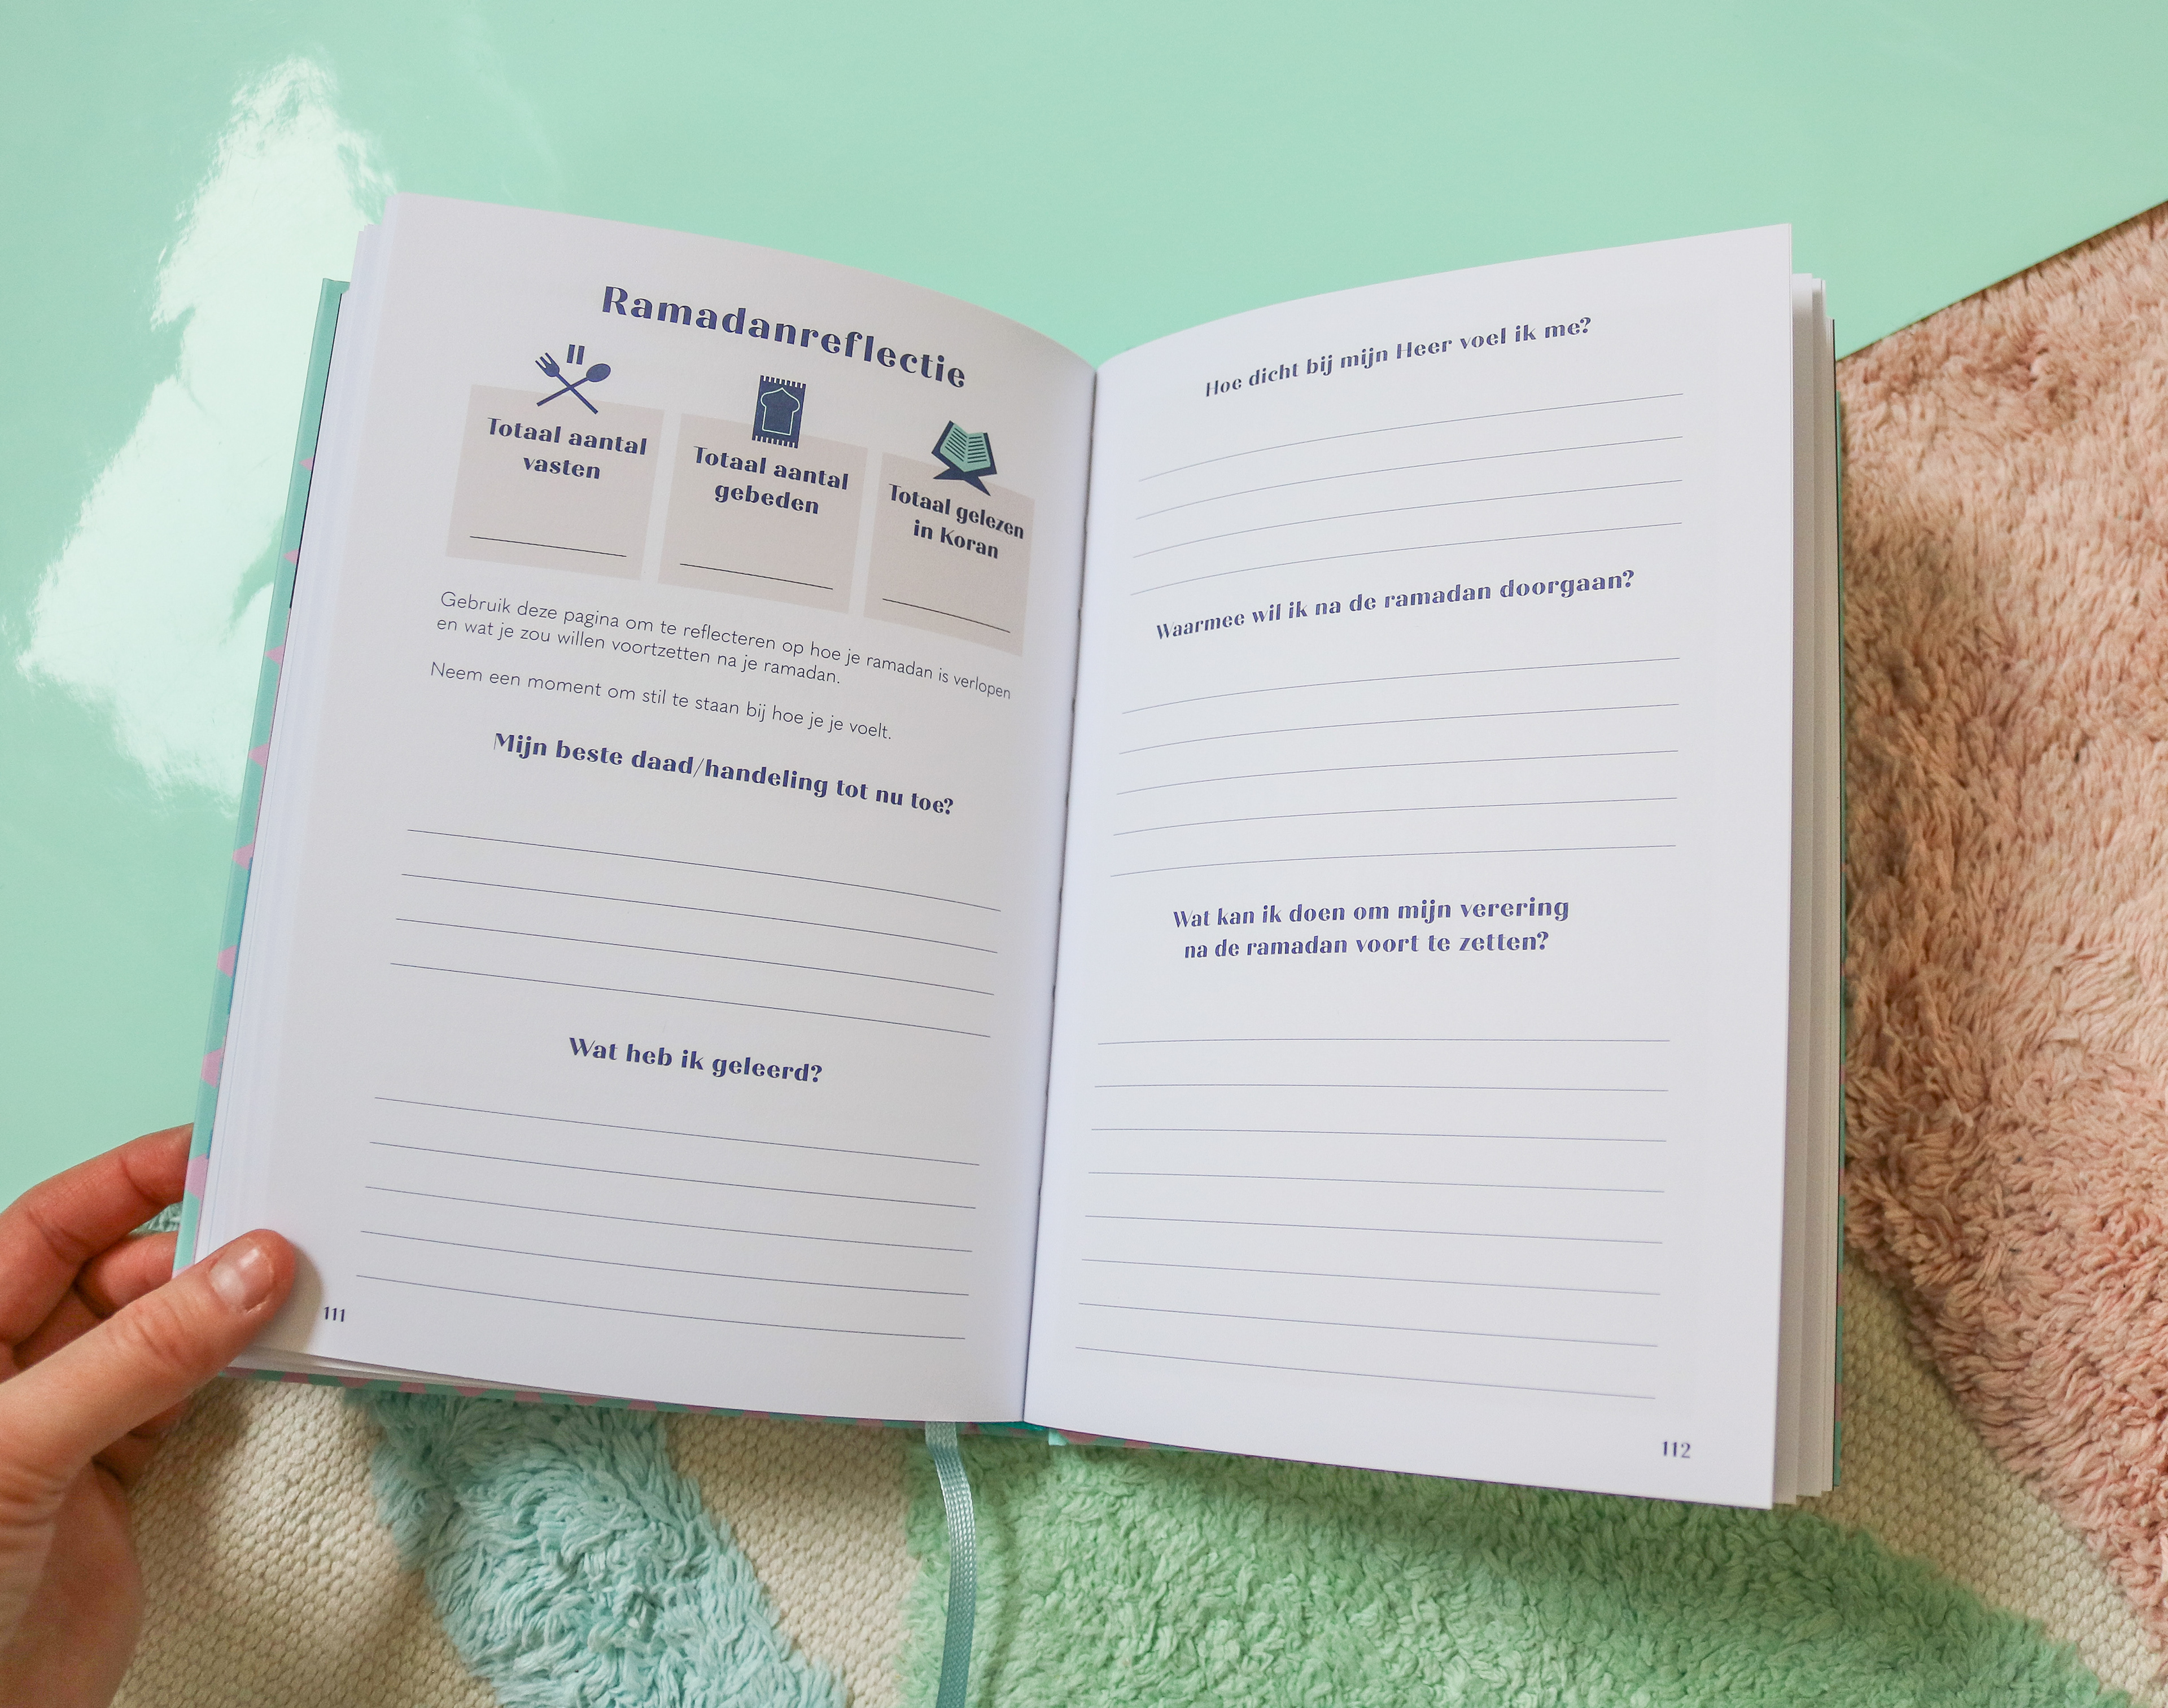 Ramadanreflectie
Totaal aantal
vasten
Totaal aantal
gebeden
Totaal gelezen
in Koran
Gebruik deze pagina om te reflecteren op hoe je ramadan is verlopen
en wat je zou willen voortzetten na je ramadan.
Neem een moment om stil te staan bij hoe je je voelt.
Mijn beste daad/handeling tot nu toe?
Wat heb ik geleerd?
111
Hoe dicht bij mijn Heer voel ik me?
Waarmee wil ik na de ramadan doorgaan?
Wat kan ik doen om mijn verering
na de ramadan voort te zetten?
112